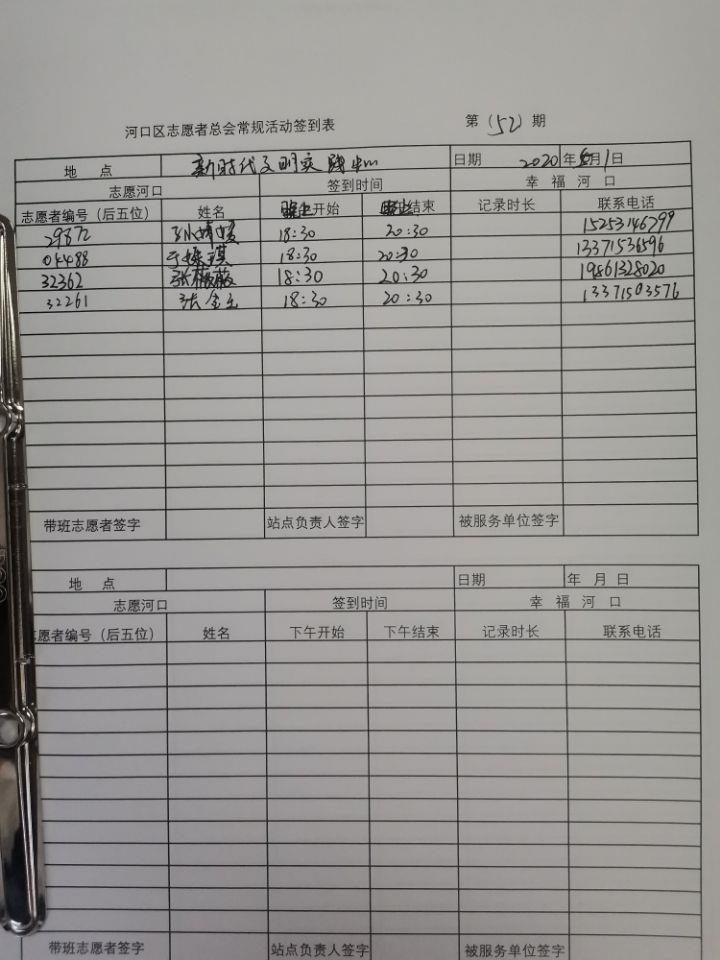 河口区志愿者总会常规活动签到表 第（52）期
地 点 新时代文明实践中心 日期 2020年 月1日
志愿河口 签到时间 幸 福 河 口
志愿者编号（后五位） 姓名 晚上开始 晚上结束 记录时长 联系电话
29872 18:30 20:30 15253146799
04488 18:30 20:30 13371536596
32362 张薇薇 18:30 20:30 19861328020
32261 张金玉 18:30 20:30 13371503576
带班志愿者签字 站点负责人签字 被服务单位签字
地 点 日期 年 月 日
志愿河口 签到时间 幸 福 河 口
志愿者编号（后五位） 姓名 下午开始 下午结束 记录时长 联系电话
带班志愿者签字 站点负责人签字 被服务单位签字